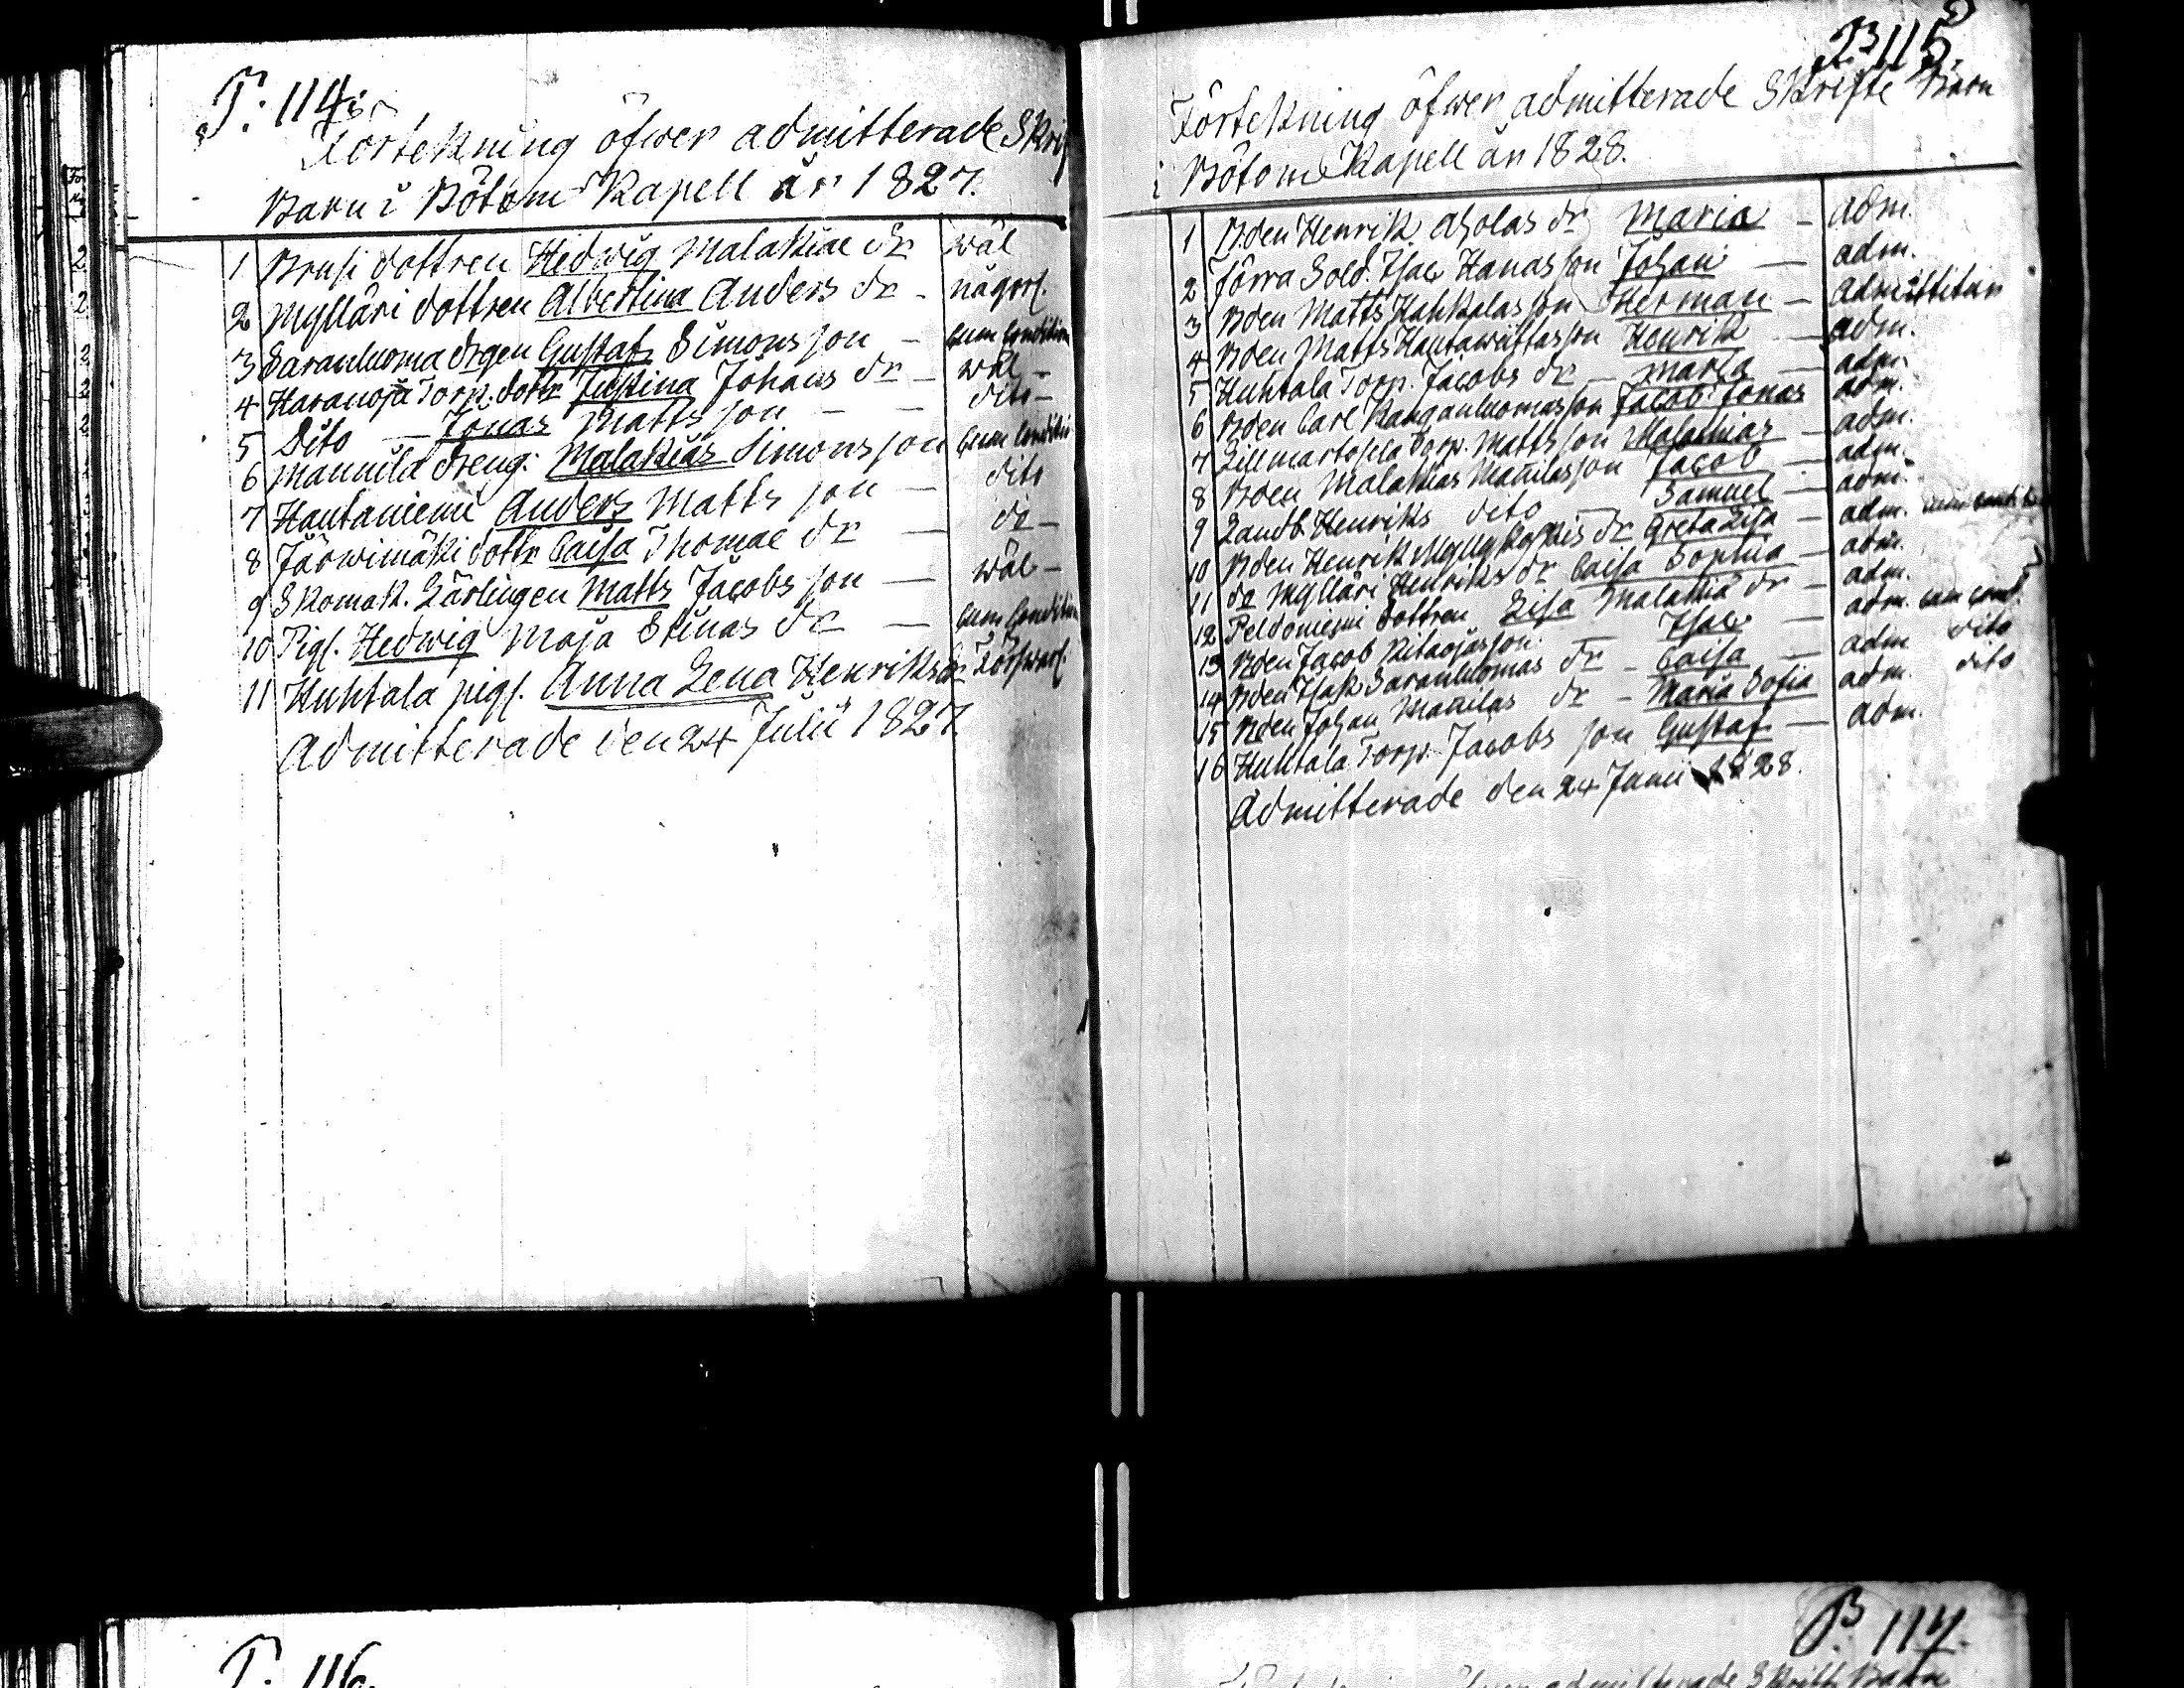 P. 114.
Förtekning öfwer admitterade Skrif
Barn i Bötom Kapell år 1827.
1 Brusi dottren Hedwig Malakiae dr wäl
2 Mylläri dottren Albertina Anders dr - någorl.
3 Saranluoma drgen Gustaf Simons son - Cum Condition
4 Haranoja Torp. dottr Justina Johans dr - wäl -
5 Dito - Jonas Matts son - - dito -
6 Mannila dreng: Malakias Simons son Cum Conditio
7 Hautaniemi Anders Matts son - dito
8 Järwimäki dottr Caisa Thomae dr - dr -
9 Skomak. Lärlingen Matts Jacobs son - wäl -
10 Pigl. Hedwig Maja Stinas dr - Cum Condition
11 Huhtala pigl. Anna Lena Henriks dr Förswarl.
Admitterade den 24 Julii 1827.
P 115.
Förtekning öfwer admitterade Skrifte Barn
i Bötom Kapell år 1828.
1 Bden Henrik Aholas dr Maria - adm.
2 Förra Sold. Isac Hanas son Johan - adm.
3 Bden Matts Hahkalas son Herman - admittitur
4 Bden Matts Hautawiittas son Henrik - adm.
5 Huhtala Torp. Jacobs dr - Maria - adm.
6 Bden Carl Kanganluomas son Jacob Jonas adm.
7 Torp. Matts son Malakias - adm.
8 Bden Malakias Manilas son Jacob - adm.
9 Landb. Henriks dito - Samuel - adm.
10 Bden Henrik Myllykoskis dr Greta Lisa - adm.
11 dr Mylläri Henriks dr Caisa Sophia - adm.
12 Peldoniemi dottren Lisa Malakiä dr - adm.
13 Bden Jacob Ritaojas son - Isac - adm. cum cond.
14 Bden Isak Saranluomas dr - Caisa - adm dito
15 Bden Johan Manilas dr - Maria Sofia adm. dito
16 Huhtala Torp. Jacobs son Gustaf - adm.
Admitterade den 24 Junii 1828.
P. 116.
P. 117.
admitterade Skrift Barn